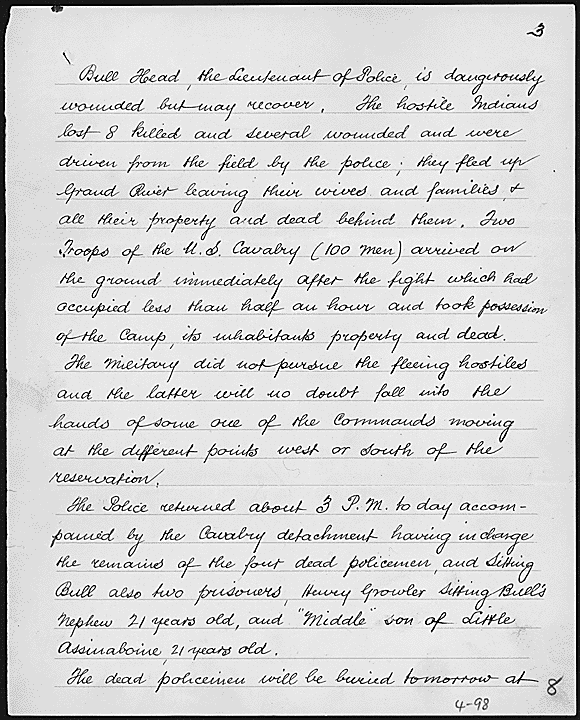 3
Bull Head, the Lieutenant of Police, is dangerously
wounded but may recover. The hostile Indians
lost 8 killed and several wounded and were
driven from the field by the police; they fled up
Grand River leaving their wives and families, &
all their property and dead behind them. Two
Troops of the U.S. Cavalry (100 men) arrived on
the ground immediately after the fight which had
occupied less than half an hour and took possession
of the Camp, its inhabitants property and dead.
The Military did not pursue the fleeing hostiles
and the latter will no doubt fall into the
hands of some one of the Commands moving
at the different points west or south of the
reservation.
The Police returned about 3 P.M. to day accom-
panied by the Cavalry detachment having in charge
the remains of the four dead policemen, and Sitting
Bull also two prisoners, Henry Growler Sitting Bull's
Nephew 21 years old, and "Middle" son of Little
Assinaboine, 21 years old.
The dead policemen will be buried tomorrow at
8
4-98